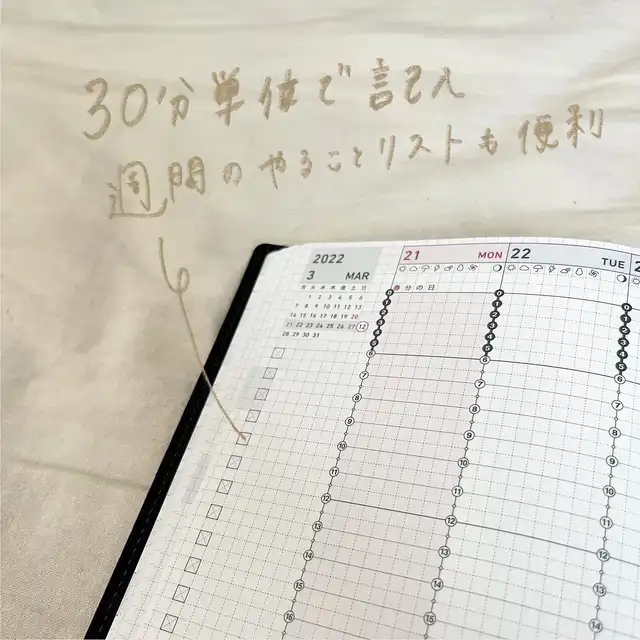 30分単位で記入
週間のやることリストも便利
2022
3 MAR
月 火 水 木 金 土 日
1 2 3 4 5 6
7 8 9 10 11 12 13
14 15 16 17 18 19 20
21 22 23 24 25 26 27 ⑫
28 29 30 31
21 MON
春分の日
0 1 2 3 4 5 ⑥ ⑦ ⑧ ⑨ ⑩ ⑪ ⑫ ⑬ ⑭ ⑮ ⑯
22 TUE
0 1 2 3 4 5 ⑥ ⑦ ⑧ ⑨ ⑩ ⑪ ⑫ ⑬ ⑭ ⑮ ⑯
2
0 1 2 3 4 5 ⑥ ⑦ ⑧ ⑨ ⑩ ⑪ ⑫ ⑬ ⑭